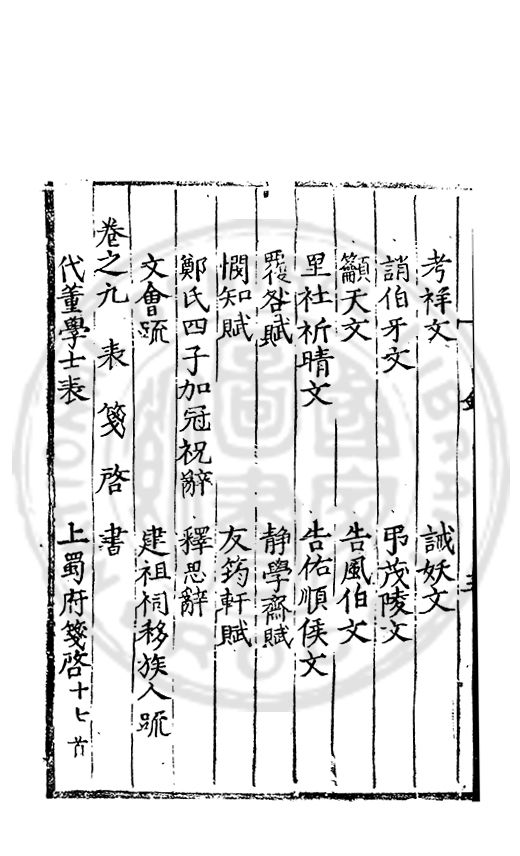 考祥文 誡妖文
誚伯牙文 弔茂陵文
籲天文 告風伯文
里社祈晴文 告佑順侯文
覆咎賦 静學齋賦
憫知賦 友筠軒賦
鄭氏四子加冠祝辭 釋思辭
文會䟽 建祖祠移族人䟽
卷之九 表 箋 啓 書
代董學士表 上蜀府箋啓十七首